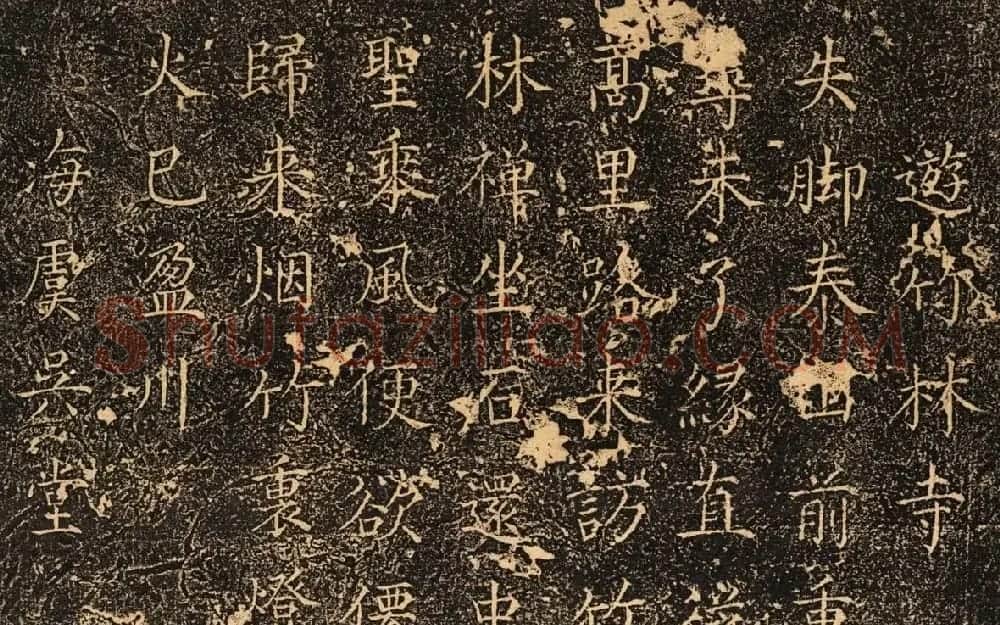 遊竹林寺
失脚泰山前重
尋未了緣直
高里路来訪竹
林禅坐石還中
聖乗風便欲僊
歸来烟竹裏燈
火已盈川
海虞吳堂
Shutaziliao.com